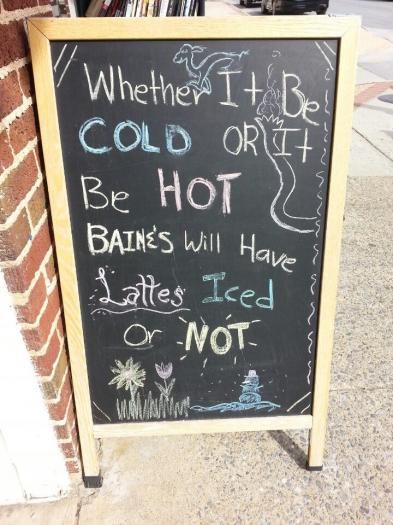 Whether It Be
COLD OR It
Be HOT
BAINE'S Will Have
Lattes Iced
Or NOT